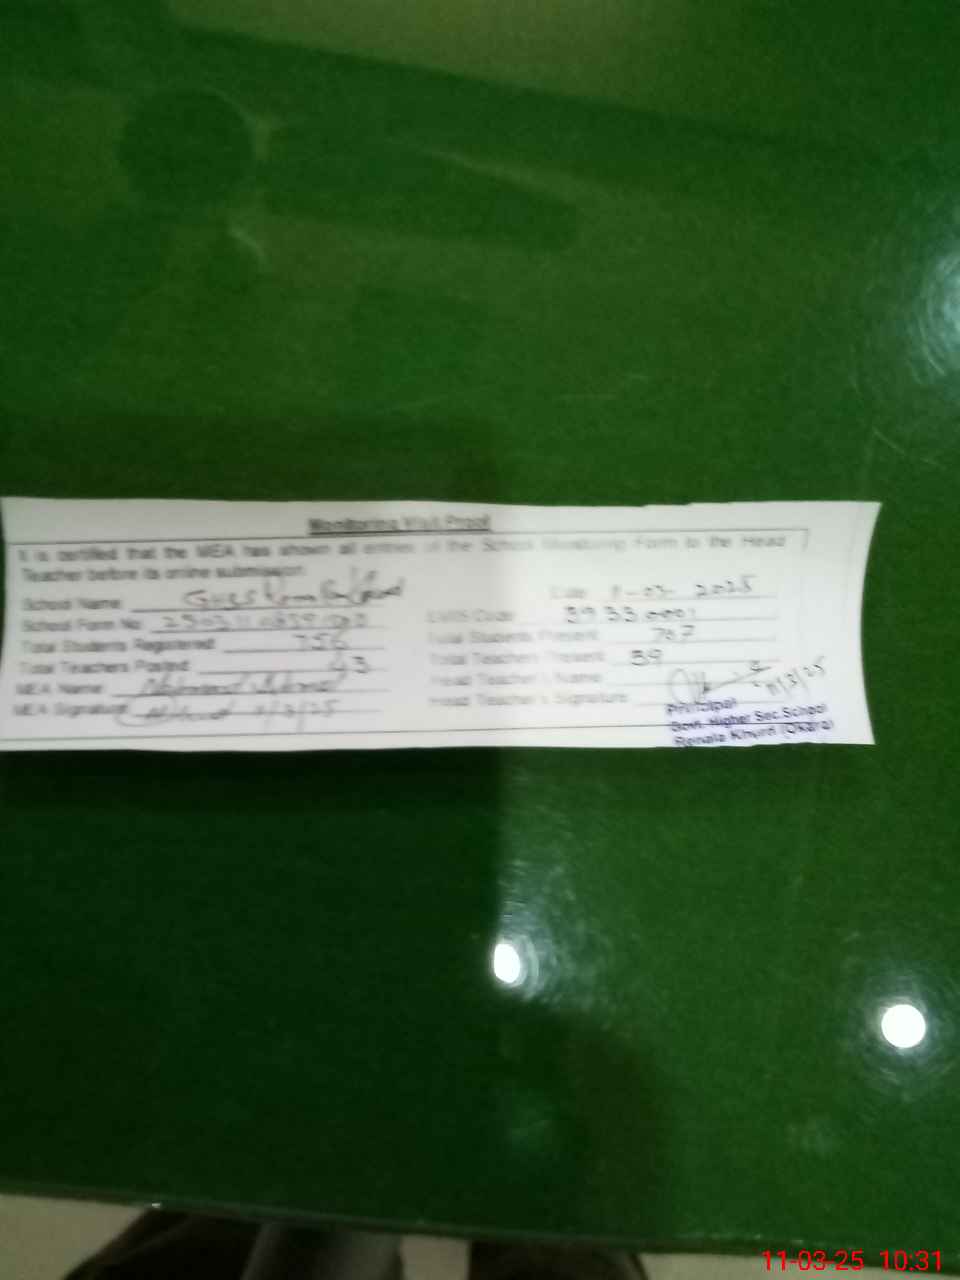 Monitoring Visit Proof
It is certified that the MEA has shown all entries of the School Monitoring Form to the Head
Teacher before its online submission.
School Name GHSS Date 11-03-2025
School Form No EMIS Code 39330001
Total Students Registered 756 Total Students Present 707
Total Teachers Posted 43 Total Teachers Present 39
MEA Name Head Teacher's Name
MEA Signature 11/3/25 Head Teacher's Signature 11/3/25
Principal
Govt. Higher Sec. School
Renala Khurd (Okara)
11-03-25 10:31